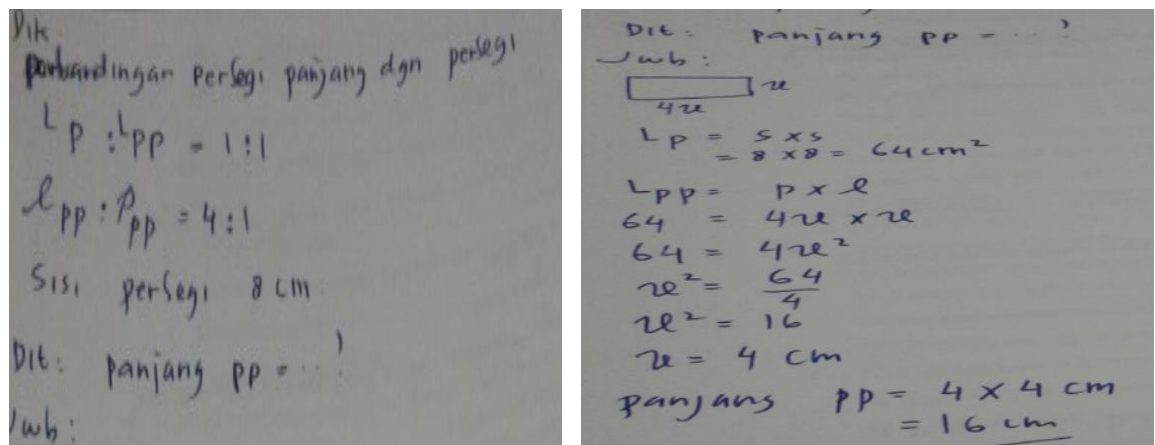 Dik
perbandingan persegi panjang dgn persegi
L p : L pp = 1:1
l pp : p pp = 4:1
Sisi persegi 8 cm
Dit: panjang pp = ...?
Jwb:
Dit: panjang pp = ...?
Jwb:
x
4x
L p = s x s
= 8 x 8 = 64 cm²
L pp = p x l
64 = 4x x x
64 = 4x²
x² = 64/4
x² = 16
x = 4 cm
panjang pp = 4 x 4 cm
= 16 cm